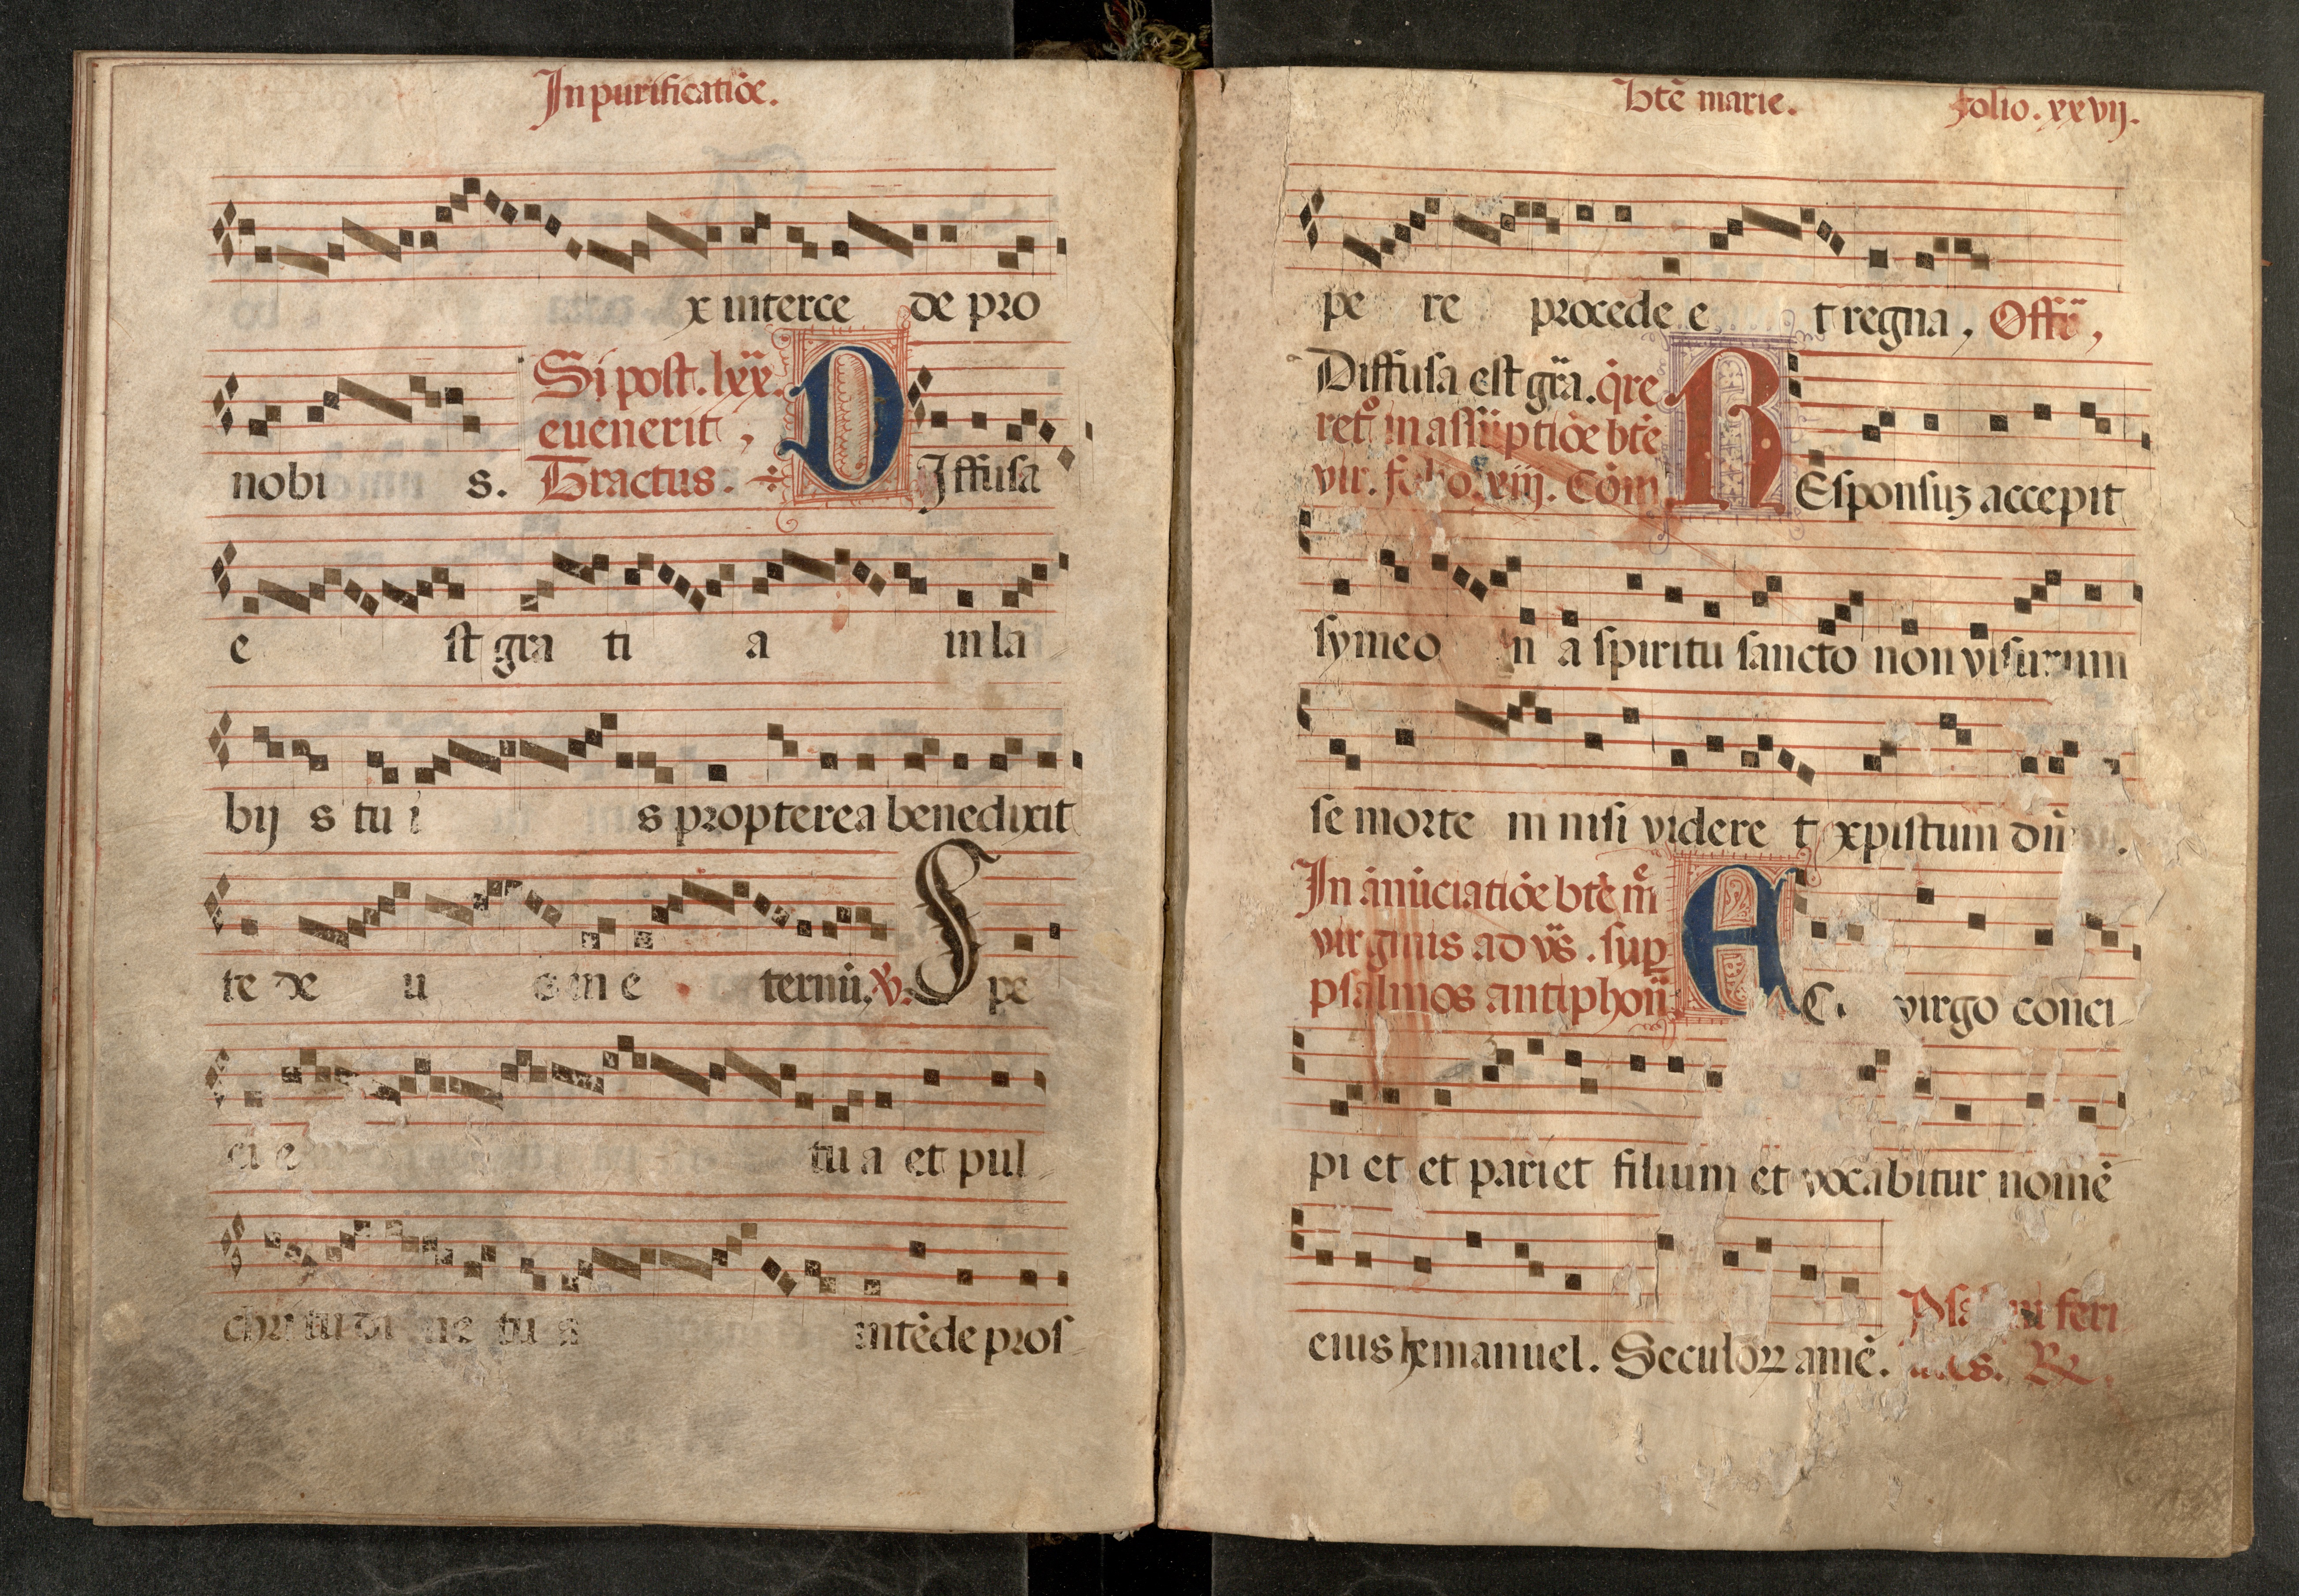 In purificatiōe.
x interce de pro
nobi s.
Si post .lxx.
evenerit,
Tractus.
DIffusa
e st gra ti a in la
bijs tui s propterea benedixit
te de u s in e ternū. V. Spe
ci e tu a et pul
chri tu di ne tu a intēde pros
btē marie. folio. xxvij.
pe re procede e t regna, Offū,
Diffusa est grā. q̄re
ret° in assūptiōe btē
vir. folio. xiij. Cōm
REsponsuz accepit
symeo n a spiritu sancto non visurum
se morte m nisi videre t xpistum dn̄
In ānūciatiōe btē m̄
virginis ad vs̄. sup
psalmos antiphon̄
EC virgo conci
pi et et pariet filium et vocabitur nomē
eius hemanuel. Seculoꝝ amē.
feri